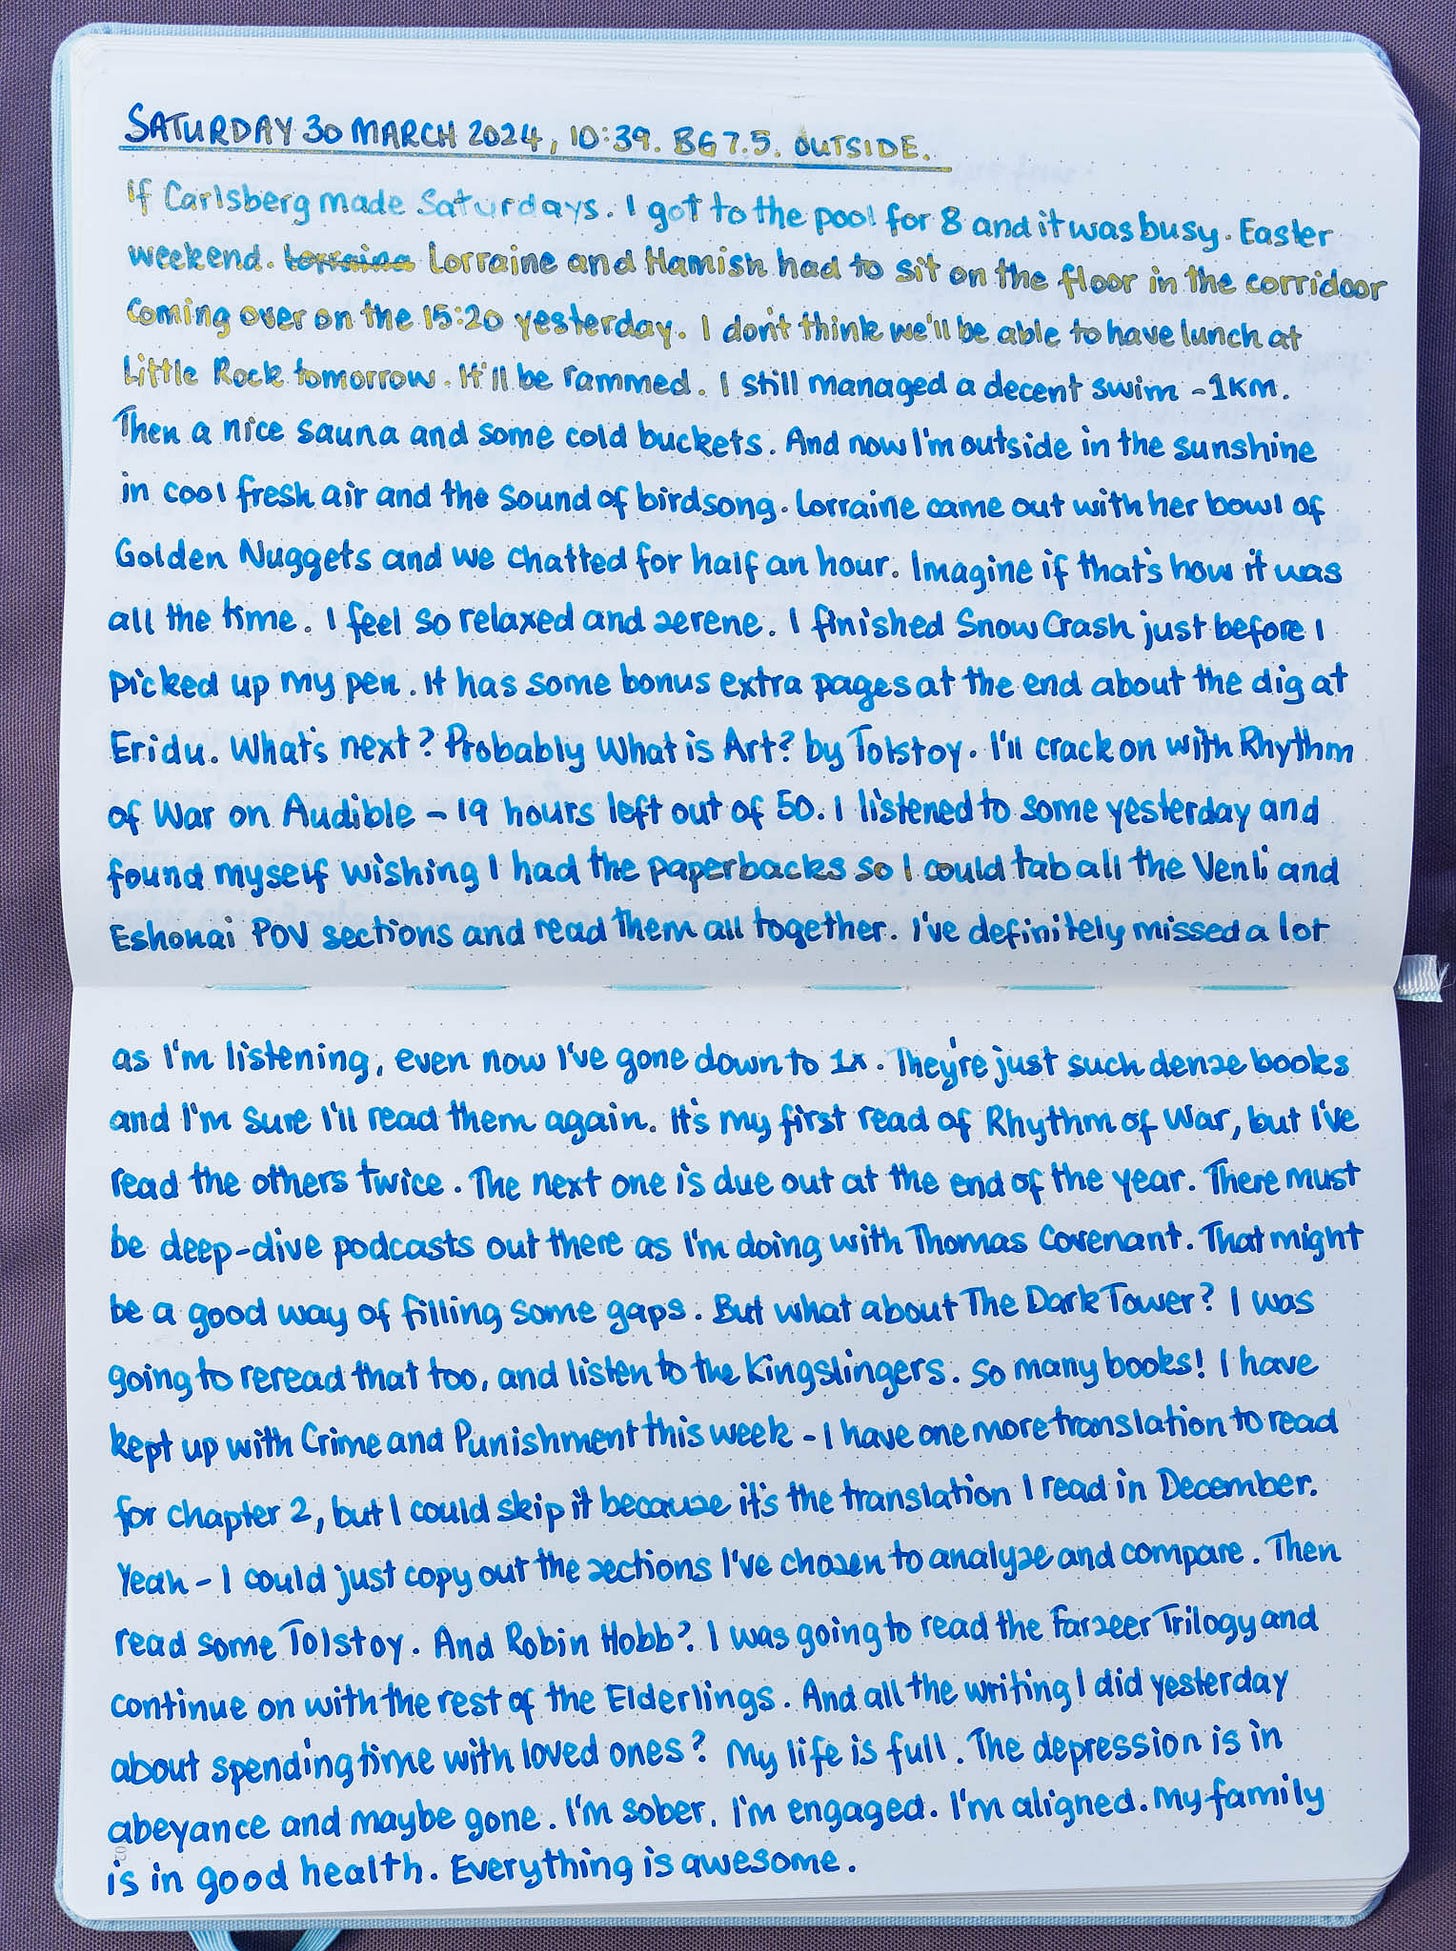 SATURDAY 30 MARCH 2024, 10:39. BG 7.5. OUTSIDE.
If Carlsberg made Saturdays. I got to the pool for 8 and it was busy. Easter
weekend. Lorraine Lorraine and Hamish had to sit on the floor in the corridoor
coming over on the 15:20 yesterday. I don't think we'll be able to have lunch at
Little Rock tomorrow. It'll be rammed. I still managed a decent swim - 1km.
Then a nice sauna and some cold buckets. And now I'm outside in the sunshine
in cool fresh air and the sound of birdsong. Lorraine came out with her bowl of
Golden Nuggets and we chatted for half an hour. Imagine if that's how it was
all the time. I feel so relaxed and serene. I finished Snow Crash just before I
picked up my pen. It has some bonus extra pages at the end about the dig at
Eridu. What's next? Probably What is Art? by Tolstoy. I'll crack on with Rhythm
of War on Audible - 19 hours left out of 50. I listened to some yesterday and
found myself wishing I had the paperbacks so I could tab all the Venli and
Eshonai POV sections and read them all together. I've definitely missed a lot
as I'm listening, even now I've gone down to 1x. They're just such dense books
and I'm sure I'll read them again. It's my first read of Rhythm of War, but I've
read the others twice. The next one is due out at the end of the year. There must
be deep-dive podcasts out there as I'm doing with Thomas Covenant. That might
be a good way of filling some gaps. But what about The Dark Tower? I was
going to reread that too, and listen to the Kingslingers. So many books! I have
kept up with Crime and Punishment this week - I have one more translation to read
for chapter 2, but I could skip it because it's the translation I read in December.
Yeah - I could just copy out the sections I've chosen to analyse and compare. Then
read some Tolstoy. And Robin Hobb? I was going to read the Farseer Trilogy and
continue on with the rest of the Elderlings. And all the writing I did yesterday
about spending time with loved ones? My life is full. The depression is in
abeyance and maybe gone. I'm sober. I'm engaged. I'm aligned. My family
is in good health. Everything is awesome.